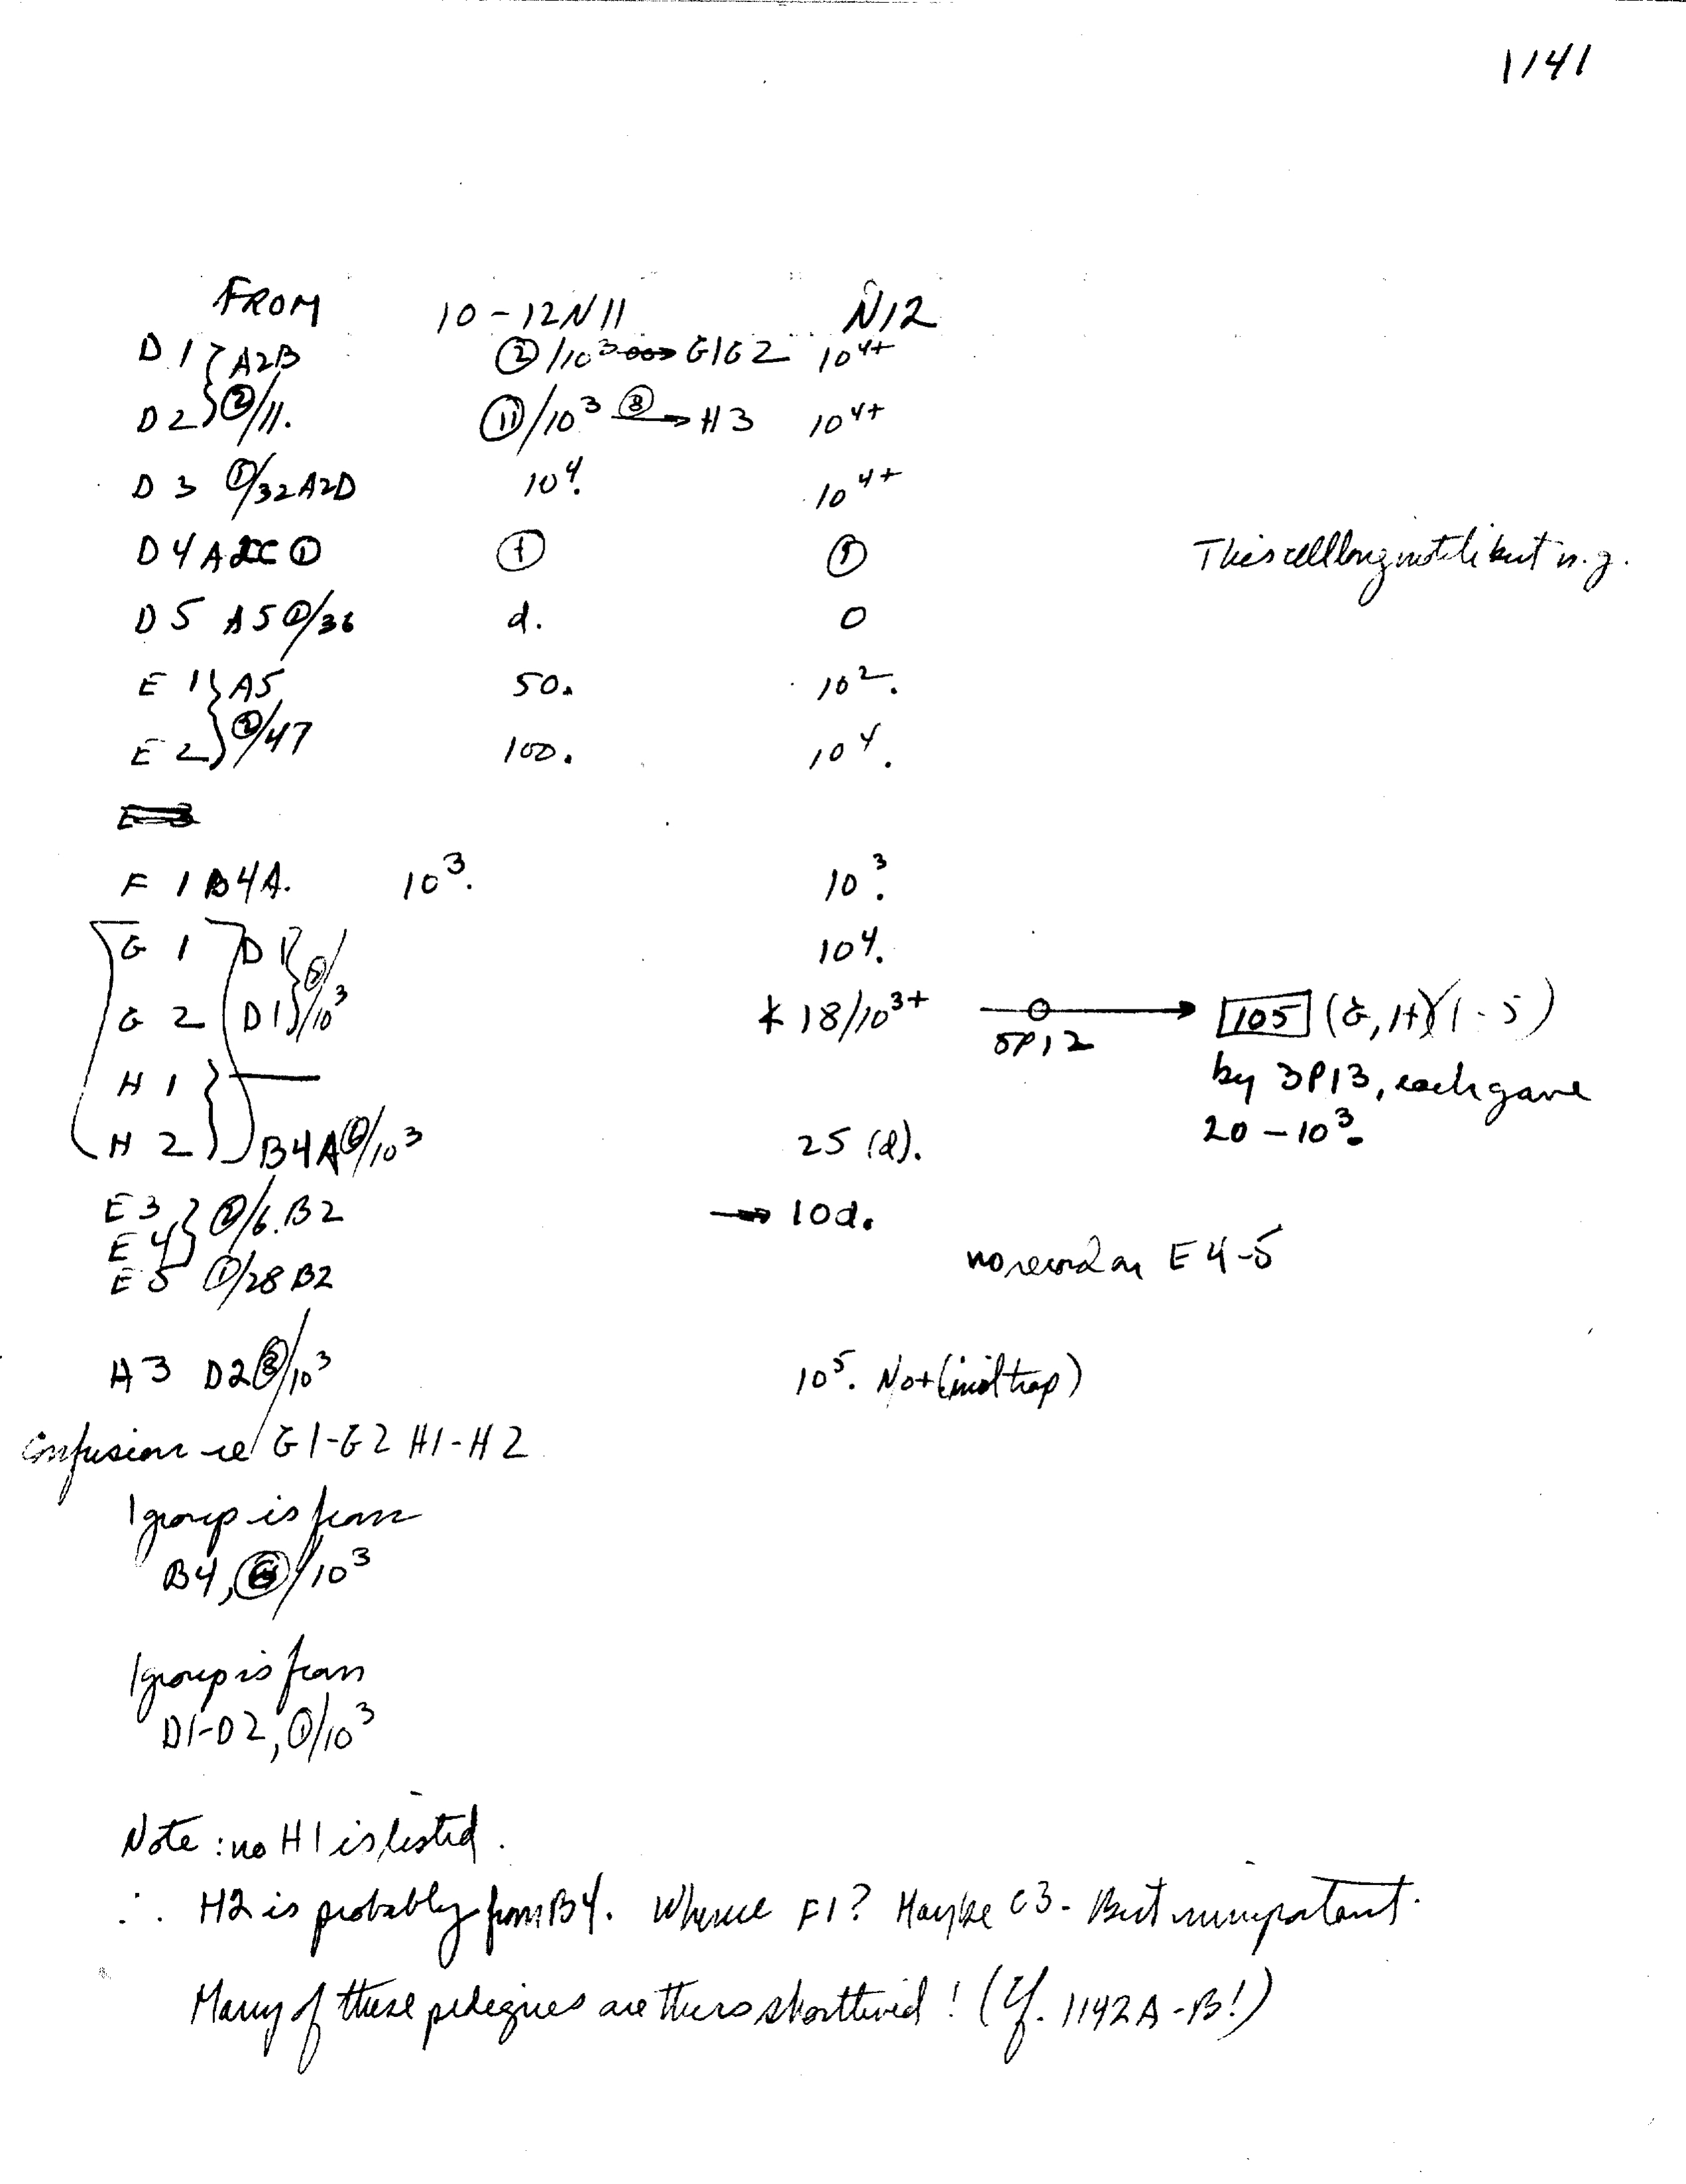 1141
FROM 10-12N11 N12
D1 } A2B ②/10³ → G1G2 10⁴⁺
D2 } ②/11. ⑪/10³ ⑧→ H3 10⁴⁺
D3 ①/32 A2D 10⁴. 10⁴⁺
D4 A2C ① ① ①
This cell long motile but n.g.
D5 A5 ①/36 d. 0
E1 } A5 50. 10².
E2 } ②/47 100. 10⁴.
E3
F1 B4A. 10³. 10³.
G1 D1 } 10⁴.
G2 D1 } /10³ * 18/10³⁺ 5P12 → 105 (G, H)(1-5)
H1 } — by 3P13, each gave
H2 } B4A⑥/10³ 25 (d). 20-10³.
E3 } ②/6. B2 → 10d.
E4 } no record on E4-5
E5 ①/28 B2
H3 D2⑧/10³ 10⁵. No + (in trap)
Confusion re G1-G2 H1-H2
1 group is from
B4, ⑥/10³
1 group is from
D1-D2, ①/10³
Note: no H1 is listed.
∴ H2 is probably from B4. Whence F1? Maybe C3- But unimportant.
Many of these pedigrees are thus shortlived! (Cf. 1142A-B!)